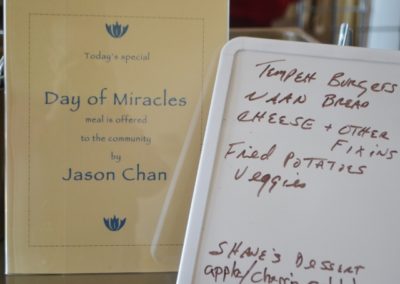 Today's special
Day of Miracles
meal is offered
to the community
by
Jason Chan
TEMPEH BURGERS
NAAN BREAD
CHEESE + OTHER
FIXINS
FRIED POTATOES
Veggies
SHANE'S DESSERT